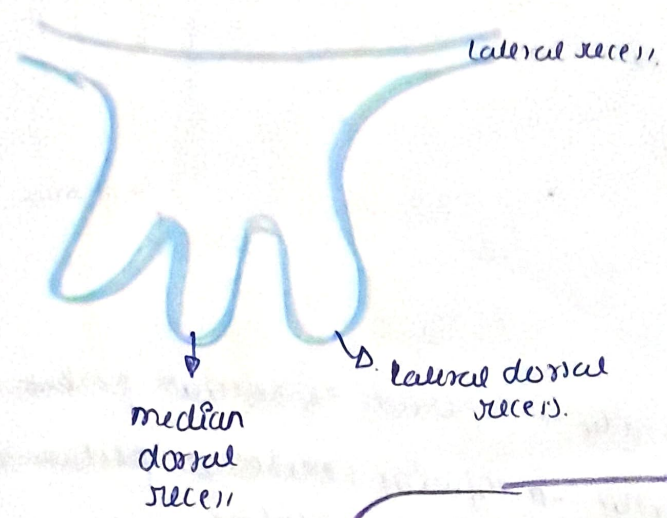 lateral recess.
lateral dorsal
recess.
median
dorsal
recess